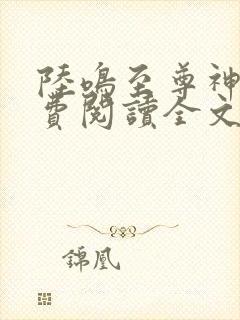 陸鳴至尊神
費閱讀全文
錦凰